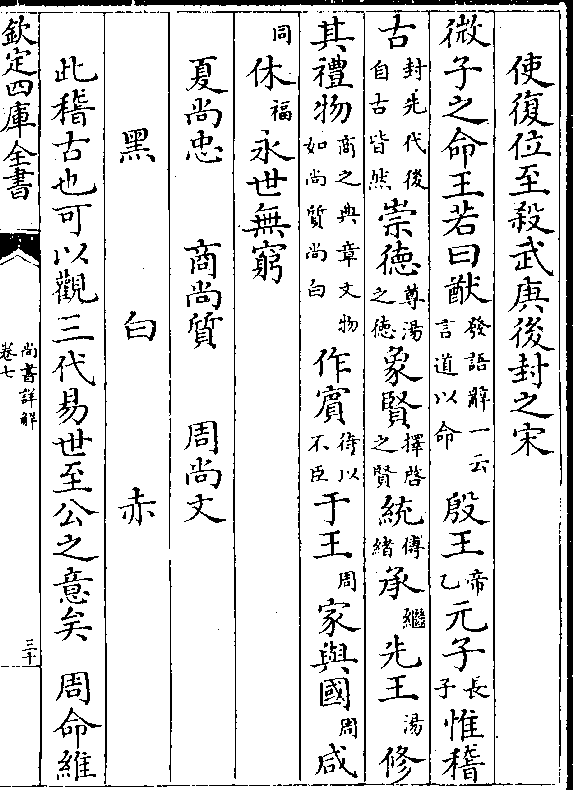 使復位至殺武庚後封之宋
微子之命王若曰猷發語辭一云言道以命殷王帝乙元子長子惟稽
古封先代後自古皆然崇德尊湯之德象賢擇啓之賢統傳緒承繼先王湯修
其禮物商之典章文物如尚質尚白作賓待以不臣于王周家與國周咸
同休福永世無窮
夏尚忠 商尚質 周尚文
黑 白 赤
此稽古也可以觀三代易世至公之意矣 周命維
欽定四庫全書
尚書詳解
卷七
三十